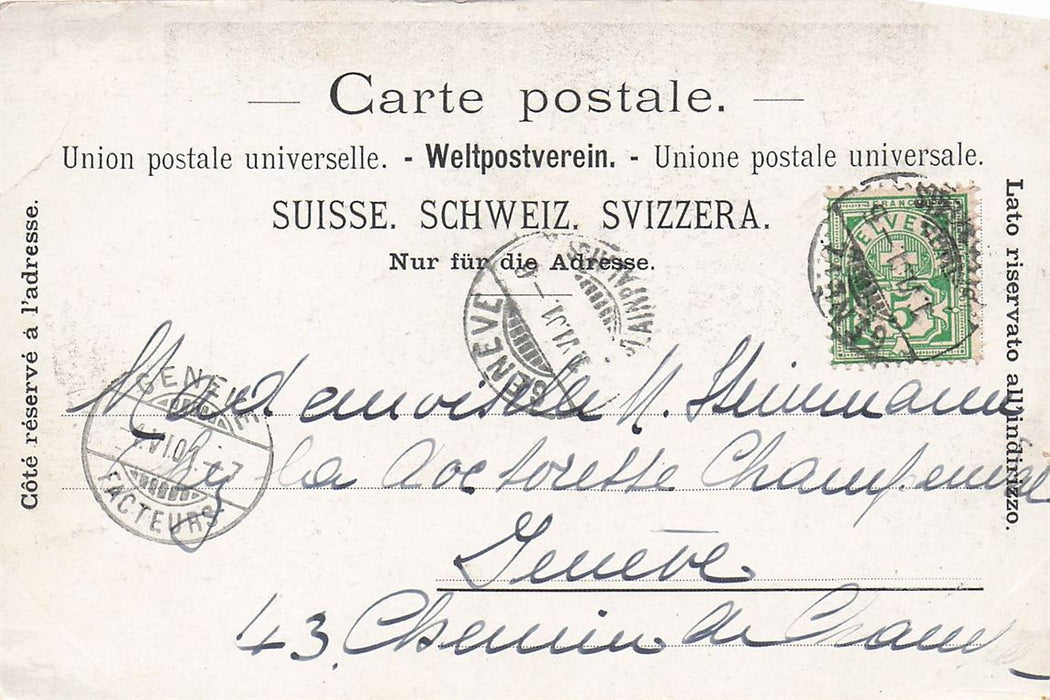 Carte postale.
Union postale universelle. - Weltpostverein. - Unione postale universale.
SUISSE. SCHWEIZ. SVIZZERA.
Nur für die Adresse.
Côté réservé à l'adresse.
Lato riservato all'indirizzo.
FRANCO
HELVETIA
5
GENÈVE
1.VI.01
GENEVE
1.VI.01-7
FACTEURS
Mademoiselle M. Steinmann
la doctoresse Champendal
Genève
43, Chemin de